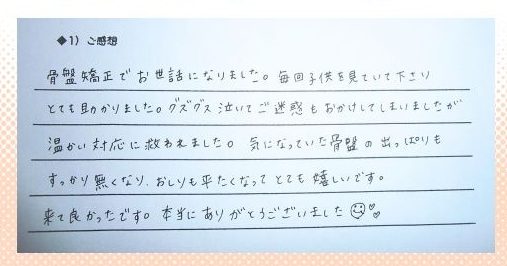 ◆1) ご感想
骨盤矯正でお世話になりました。毎回子供を見ていて下さり
とても助かりました。グズグズ泣いてご迷惑もおかけしてしまいましたが
温かい対応に救われました。気になっていた骨盤の出っぱりも
すっかり無くなり、おしりも平たくなってとても嬉しいです。
来て良かったです。本当にありがとうございました